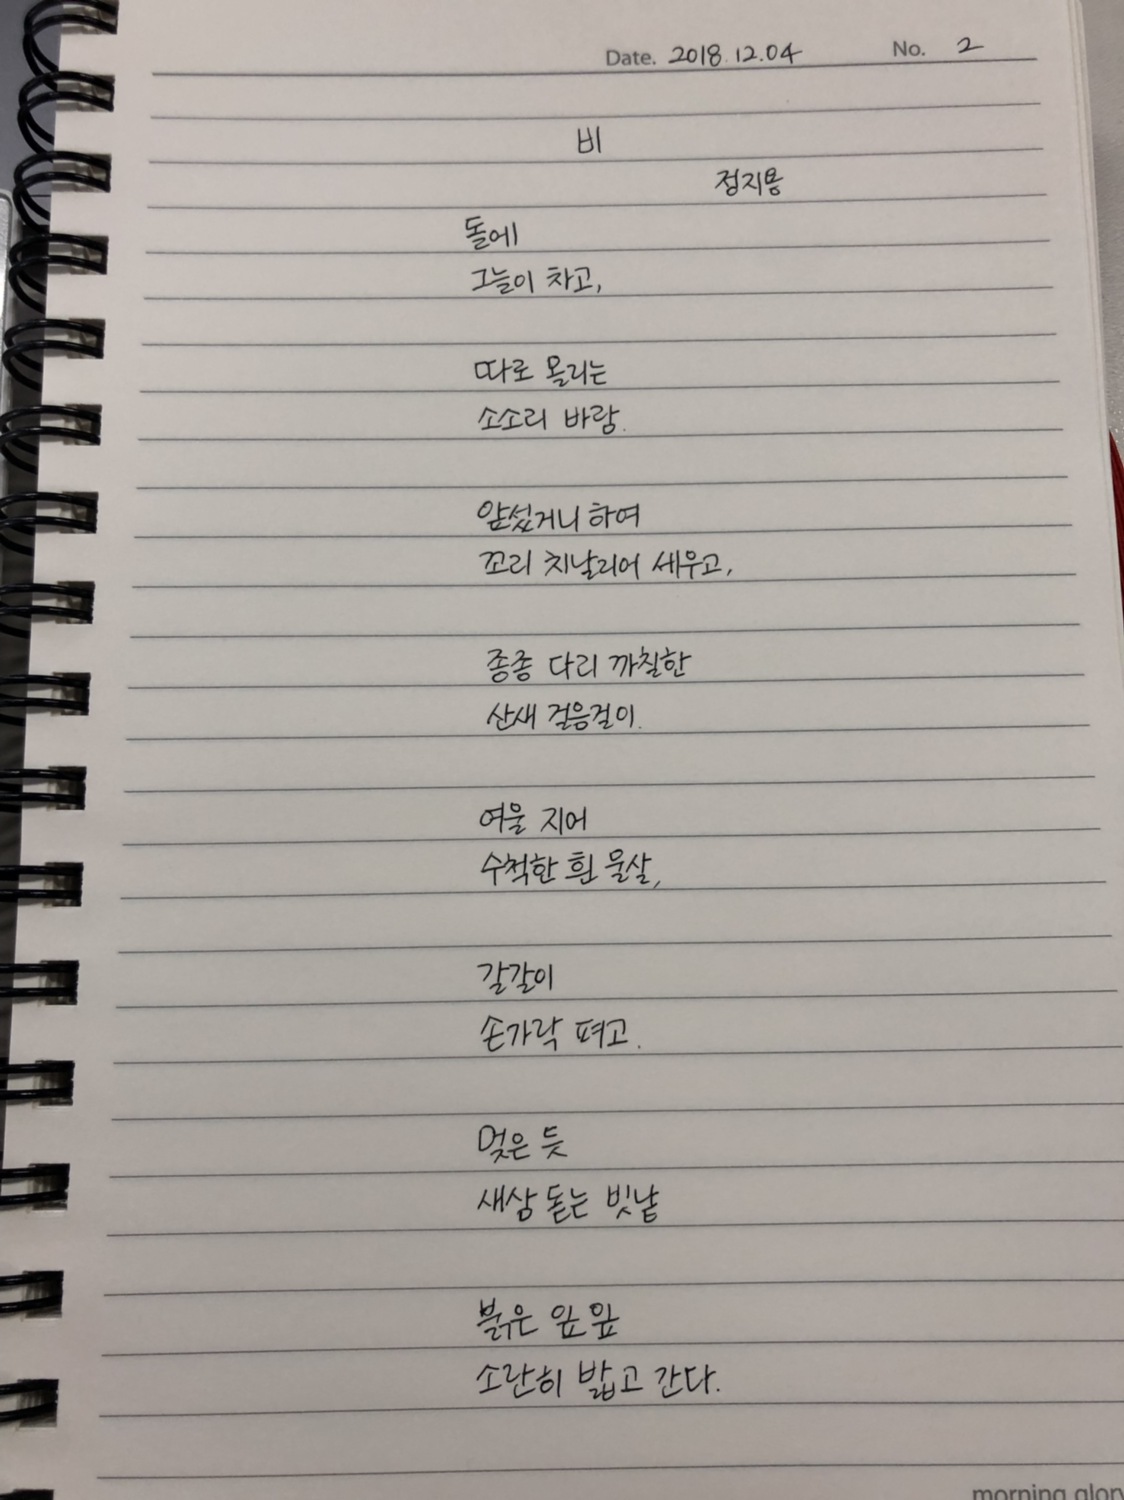 Date. 2018.12.04 No. 2
비
정지용
돌에
그늘이 차고,
따로 몰리는
소소리 바람.
앞섰거니 하여
꼬리 치날리어 세우고,
종종 다리 까칠한
산새 걸음걸이.
여울 지어
수척한 흰 물살,
갈갈이
손가락 펴고.
멎은 듯
새삼 돋는 빗낱
붉은 잎 잎
소란히 밟고 간다.
morning glory